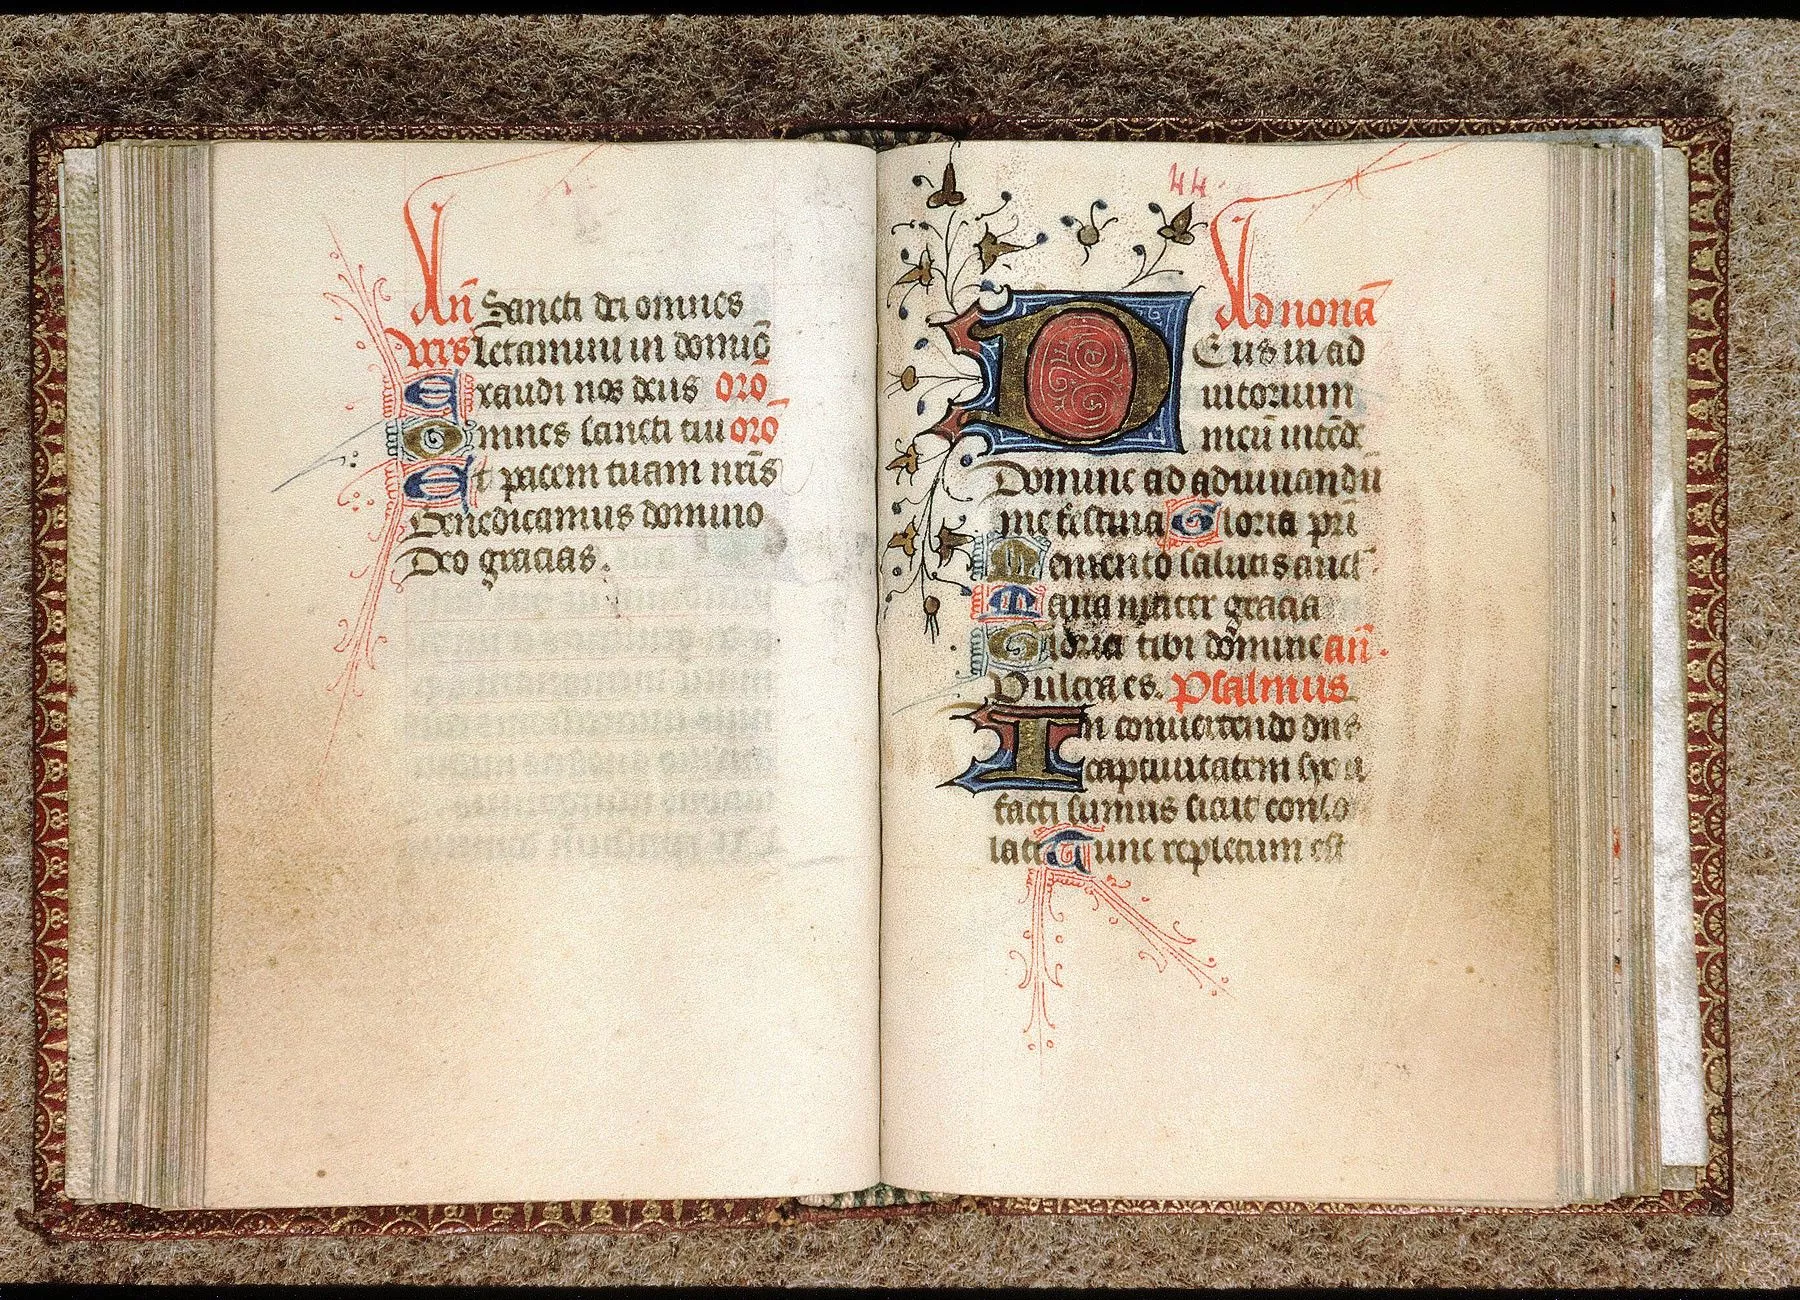 An̄ Sancti dei omnes
Vrs̄ letamini in domīo
Exaudi nos deus oro
Omnes sancti tui orō
Et pacem tuam nr̄is
Benedicamus domino
Deo gracias.
44.
Ad nonā
Deus in ad
iutorium
meū intēde
Domine ad adiuuandū
me festina Gloria pr̄i
Memento salutis auct
Maria mater gracia
Gloria tibi domine an̄.
Pulcra es. Psalmus
In conuertendo dn̄s
captiuitatem syon
facti sumus sicut conso
lati Tunc repletum est